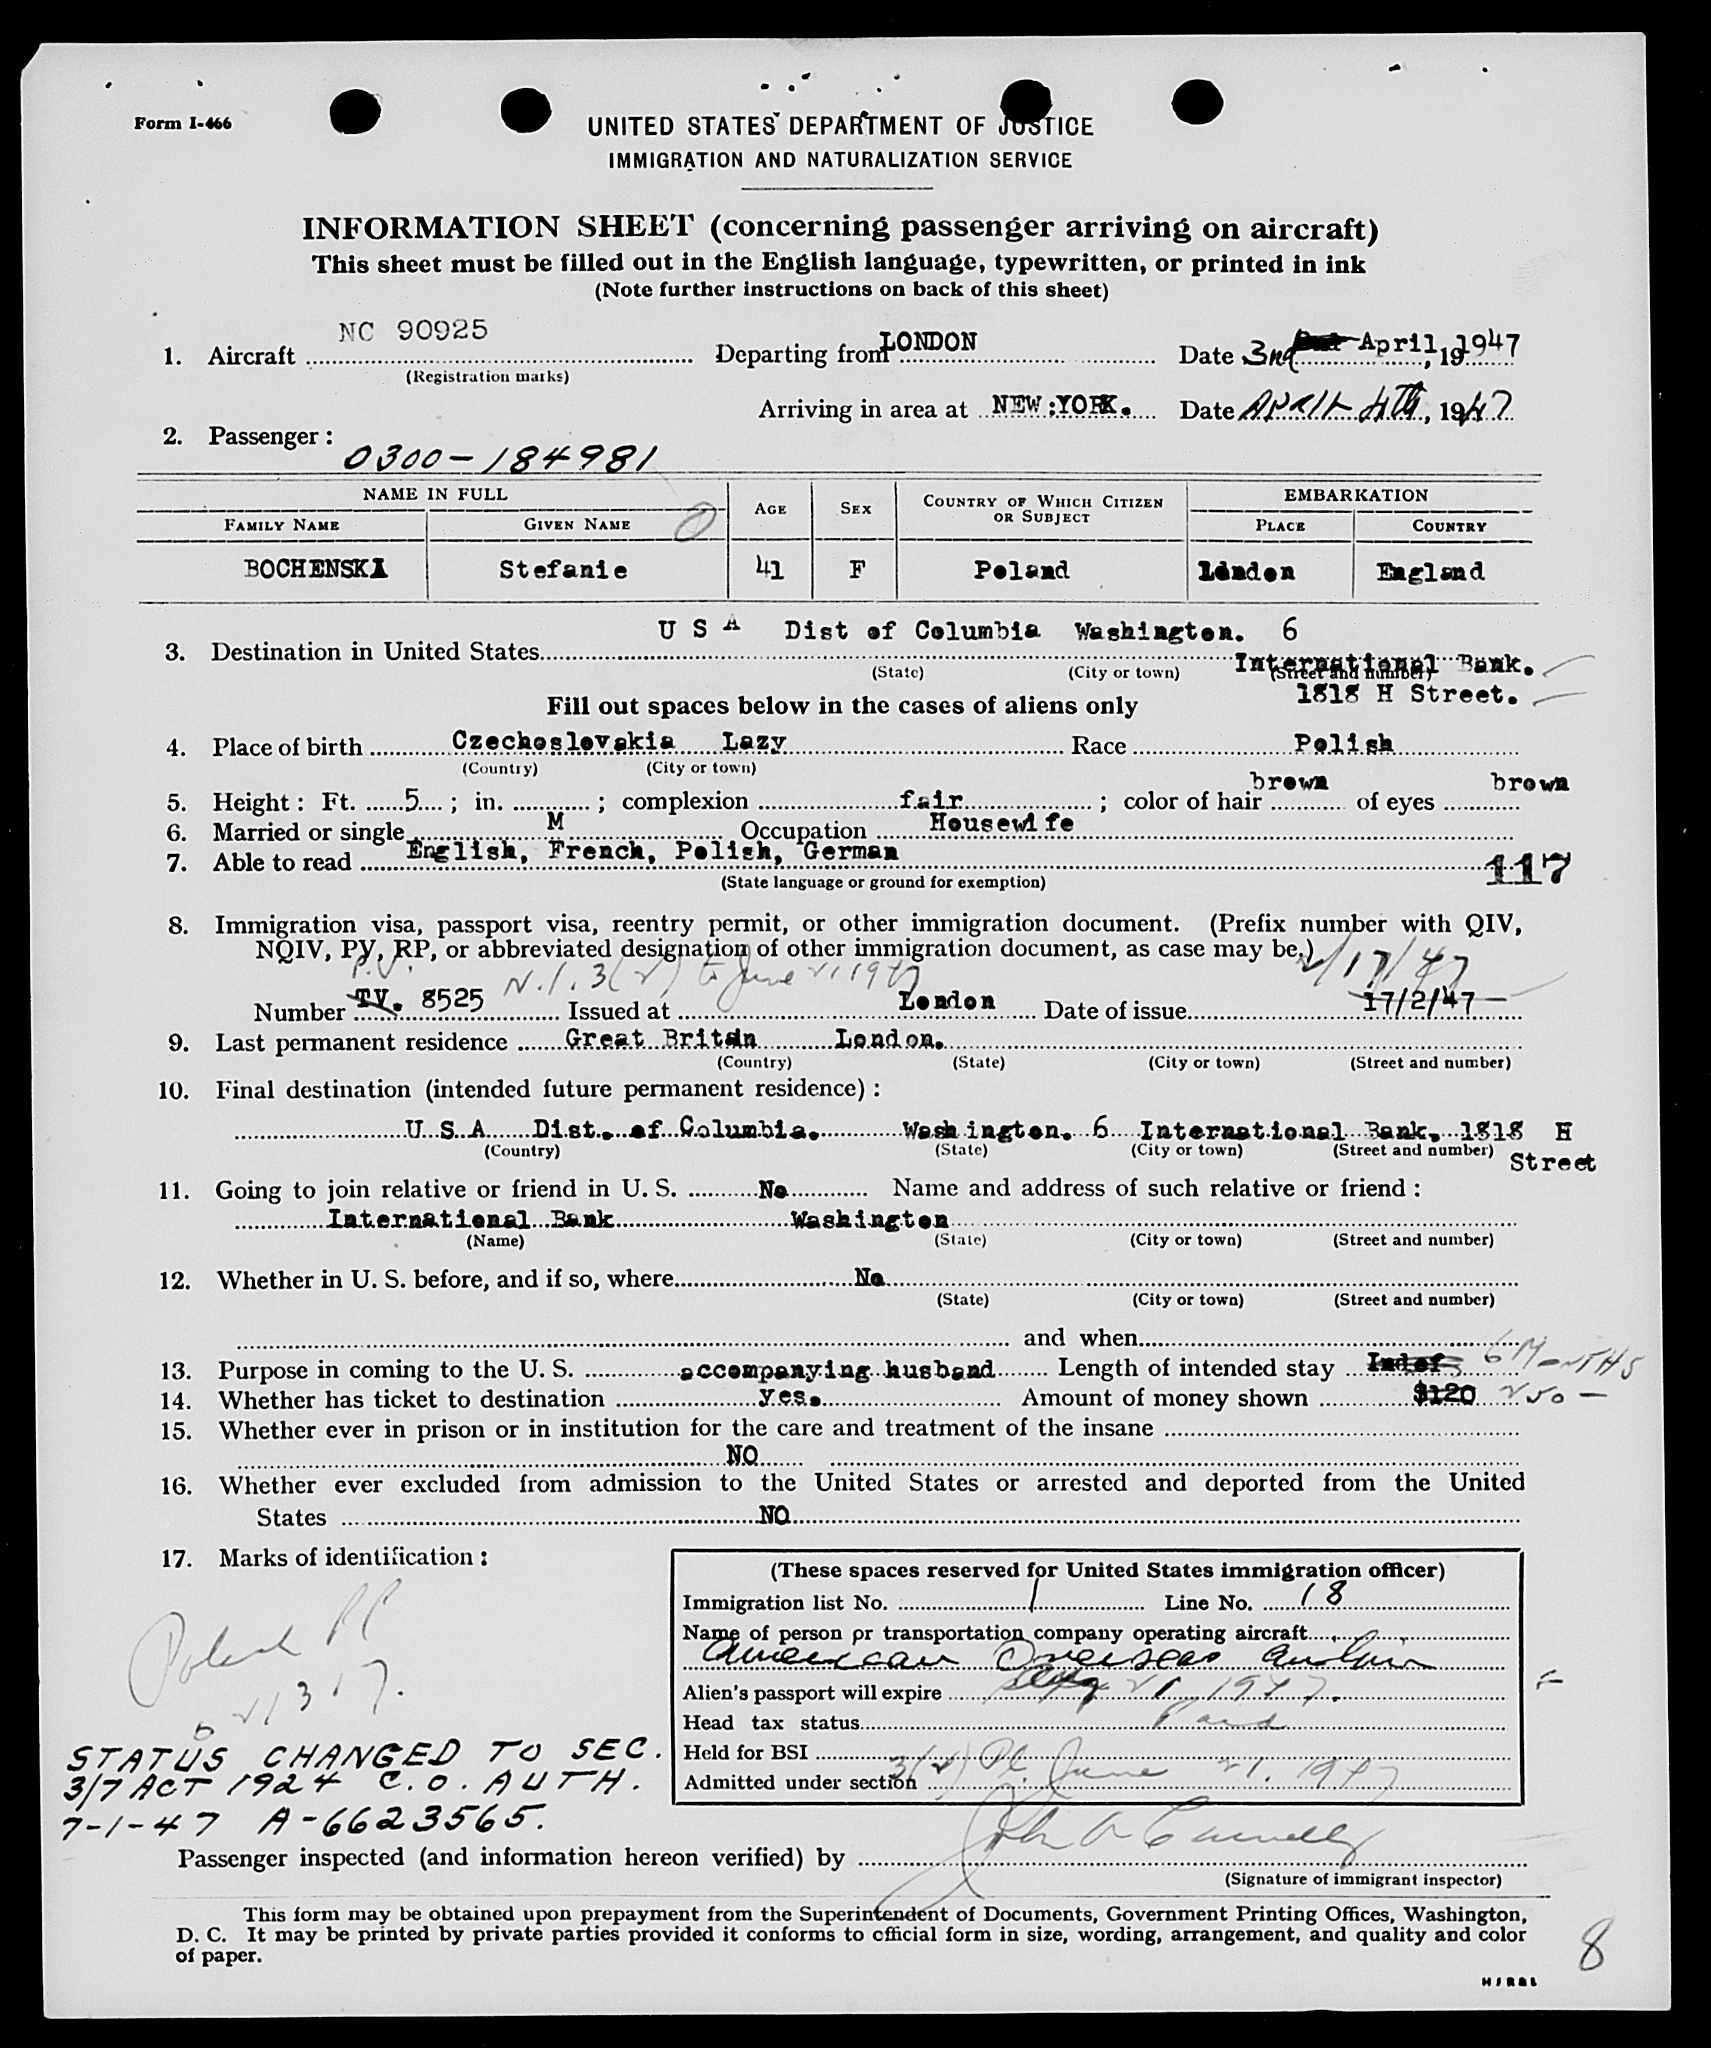 Form I-466
UNITED STATES DEPARTMENT OF JUSTICE
IMMIGRATION AND NATURALIZATION SERVICE
INFORMATION SHEET (concerning passenger arriving on aircraft)
This sheet must be filled out in the English language, typewritten, or printed in ink
(Note further instructions on back of this sheet)
1. Aircraft NC 90925 Departing from LONDON Date 3rd April, 19 1947
(Registration marks)
Arriving in area at NEW:YORK. Date APRIL 4TH, 1947
2. Passenger:
0300-184981
NAME IN FULL AGE SEX COUNTRY OF WHICH CITIZEN OR SUBJECT EMBARKATION
FAMILY NAME GIVEN NAME PLACE COUNTRY
BOCHENSKA Stefanie 41 F Poland London England
3. Destination in United States U S A Dist of Columbia Washington. 6
(State) (City or town) (Street and number) International Bank.
1818 H Street.
Fill out spaces below in the cases of aliens only
4. Place of birth Czechoslovakia Lazy Race Polish
(Country) (City or town)
5. Height: Ft. 5 ; in. ; complexion fair ; color of hair brown of eyes brown
6. Married or single M Occupation Housewife
7. Able to read English, French, Polish, German
(State language or ground for exemption)
117
8. Immigration visa, passport visa, reentry permit, or other immigration document. (Prefix number with QIV,
NQIV, PV, RP, or abbreviated designation of other immigration document, as case may be.)
P.V. N.I. 3(2) to June 21 1947 2/17/47
Number TV. 8525 Issued at London Date of issue 17/2/47
9. Last permanent residence Great Britain London.
(Country) (State) (City or town) (Street and number)
10. Final destination (intended future permanent residence):
U S A Dist. of Columbia. Washington. 6 International Bank, 1818 H
(Country) (State) (City or town) (Street and number) Street
11. Going to join relative or friend in U. S. No Name and address of such relative or friend:
International Bank Washington
(Name) (State) (City or town) (Street and number)
12. Whether in U. S. before, and if so, where No
(State) (City or town) (Street and number)
and when
13. Purpose in coming to the U. S. accompanying husband Length of intended stay Indef 6 MONTHS
14. Whether has ticket to destination yes. Amount of money shown $120 250 —
15. Whether ever in prison or in institution for the care and treatment of the insane
NO
16. Whether ever excluded from admission to the United States or arrested and deported from the United
States NO
17. Marks of identification:
(These spaces reserved for United States immigration officer)
Immigration list No. 1 Line No. 18
Name of person or transportation company operating aircraft
American Overseas Airlines
Alien's passport will expire 21 1947.
Head tax status Paid
Held for BSI
Admitted under section 3(2) Pl. June 21. 1947
Polish PP
STATUS CHANGED TO SEC.
3/7 ACT 1924 C.O. AUTH.
7-1-47 A-6623565.
Passenger inspected (and information hereon verified) by
(Signature of immigrant inspector)
This form may be obtained upon prepayment from the Superintendent of Documents, Government Printing Offices, Washington,
D. C. It may be printed by private parties provided it conforms to official form in size, wording, arrangement, and quality and color
of paper.
8